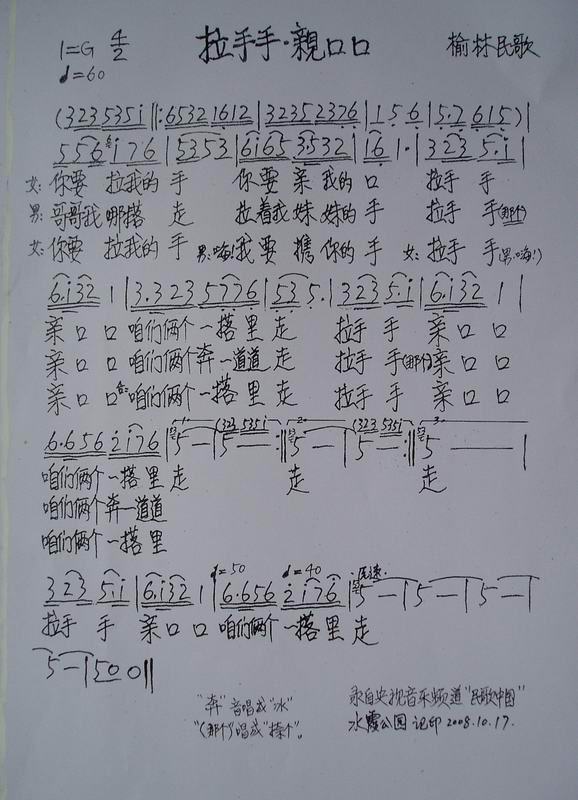 1=G 4/2 拉手手·親口口 榆林民歌
♩=60
(323 535i ‖: 6532 1612 | 3235 2376 | 1 5 6 | 5.7 615 ) |
556 i76 | 5353 | 6i65 3532 | 16 1. | 323 5.i |
女: 你要 拉我的 手 你要 亲 我的 口 拉手 手
男: 哥哥我 哪搭 走 拉着我 妹妹的 手 拉手 手(那个)
女: 你要 拉我的 手 男:嗨!我要 携 你的 手 女: 拉手 手(男:嗨!)
6.i32 1 | 3.323 5776 | 53 5. | 323 5.i | 6.i32 1 |
亲口 口 咱们俩个 一搭里 走 拉手 手 亲口 口
亲口 口 咱们俩个奔 一道道 走 拉手 手(那个)亲口 口
亲口 口 合:咱们俩个 一搭里 走 拉手 手 亲口 口
6.656 2i76 | 5 — | 5 — (323 535i) :‖ 5 — | 5 — (323 535i) :‖ 5 — |
咱们俩个 一搭里 走 走 走
咱们俩个奔 一道道
咱们俩个 一搭里
♩=50 ♩=40
323 5.i | 6.i32 1 | 6.656 2i76 | 5 — | 5 — | 5 — |
拉手 手 亲口 口 咱们俩个 一搭里 走
5 — | 50 0 ‖
"奔"音唱成"水" 录自央视音乐频道"民歌中国"
"(那个)"唱成"捺个"。 水霞公园 记印 2008.10.17.